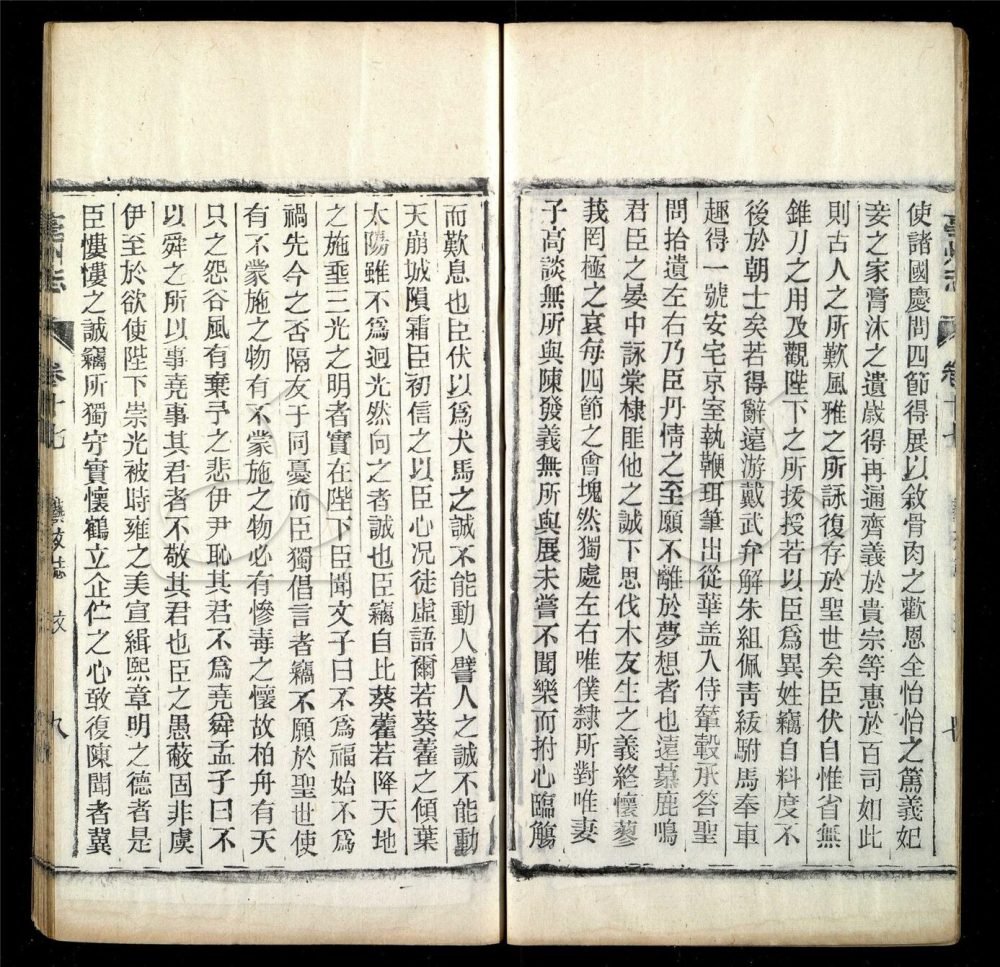 使諸國慶問四節得展以敘骨肉之歡恩全怡怡之篤義妃
妾之家膏沐之遺歲得再通齊義於貴宗等惠於百司如此
則古人之所歎風雅之所詠復存於聖世矣臣伏自惟省無
錐刀之用及觀陛下之所拔授若以臣爲異姓竊自料度不
後於朝士矣若得辭遠游戴武弁解朱組佩靑紱駙馬奉車
趣得一號安宅京室執鞭珥筆出從華盖入侍輦轂承答聖
問拾遺左右乃臣丹情之至願不離於夢想者也遠慕鹿鳴
君臣之晏中詠棠棣匪他之誠下思伐木友生之義終懷蓼
莪罔極之哀每四節之會塊然獨處左右唯僕隸所對唯妻
子高談無所與陳發義無所與展未嘗不聞樂而拊心臨觴
而歎息也臣伏以爲犬馬之誠不能動人譬人之誠不能動
天崩城隕霜臣初信之以臣心况徒虛語爾若葵藿之傾葉
太陽雖不爲迴光然向之者誠也臣竊自比葵藿若降天地
之施垂三光之明者實在陛下臣聞文子曰不爲福始不爲
禍先今之否隔友于同憂而臣獨倡言者竊不願於聖世使
有不蒙施之物有不蒙施之物必有慘毒之懷故柏舟有天
只之怨谷風有棄予之悲伊尹恥其君不爲堯舜孟子曰不
以舜之所以事堯事其君者不敬其君也臣之愚蔽固非虞
伊至於欲使陛下崇光被時雍之美宣緝熙章明之德者是
臣慺慺之誠竊所獨守實懷鶴立企伫之心敢復陳聞者冀
卷十七
藝文志
九